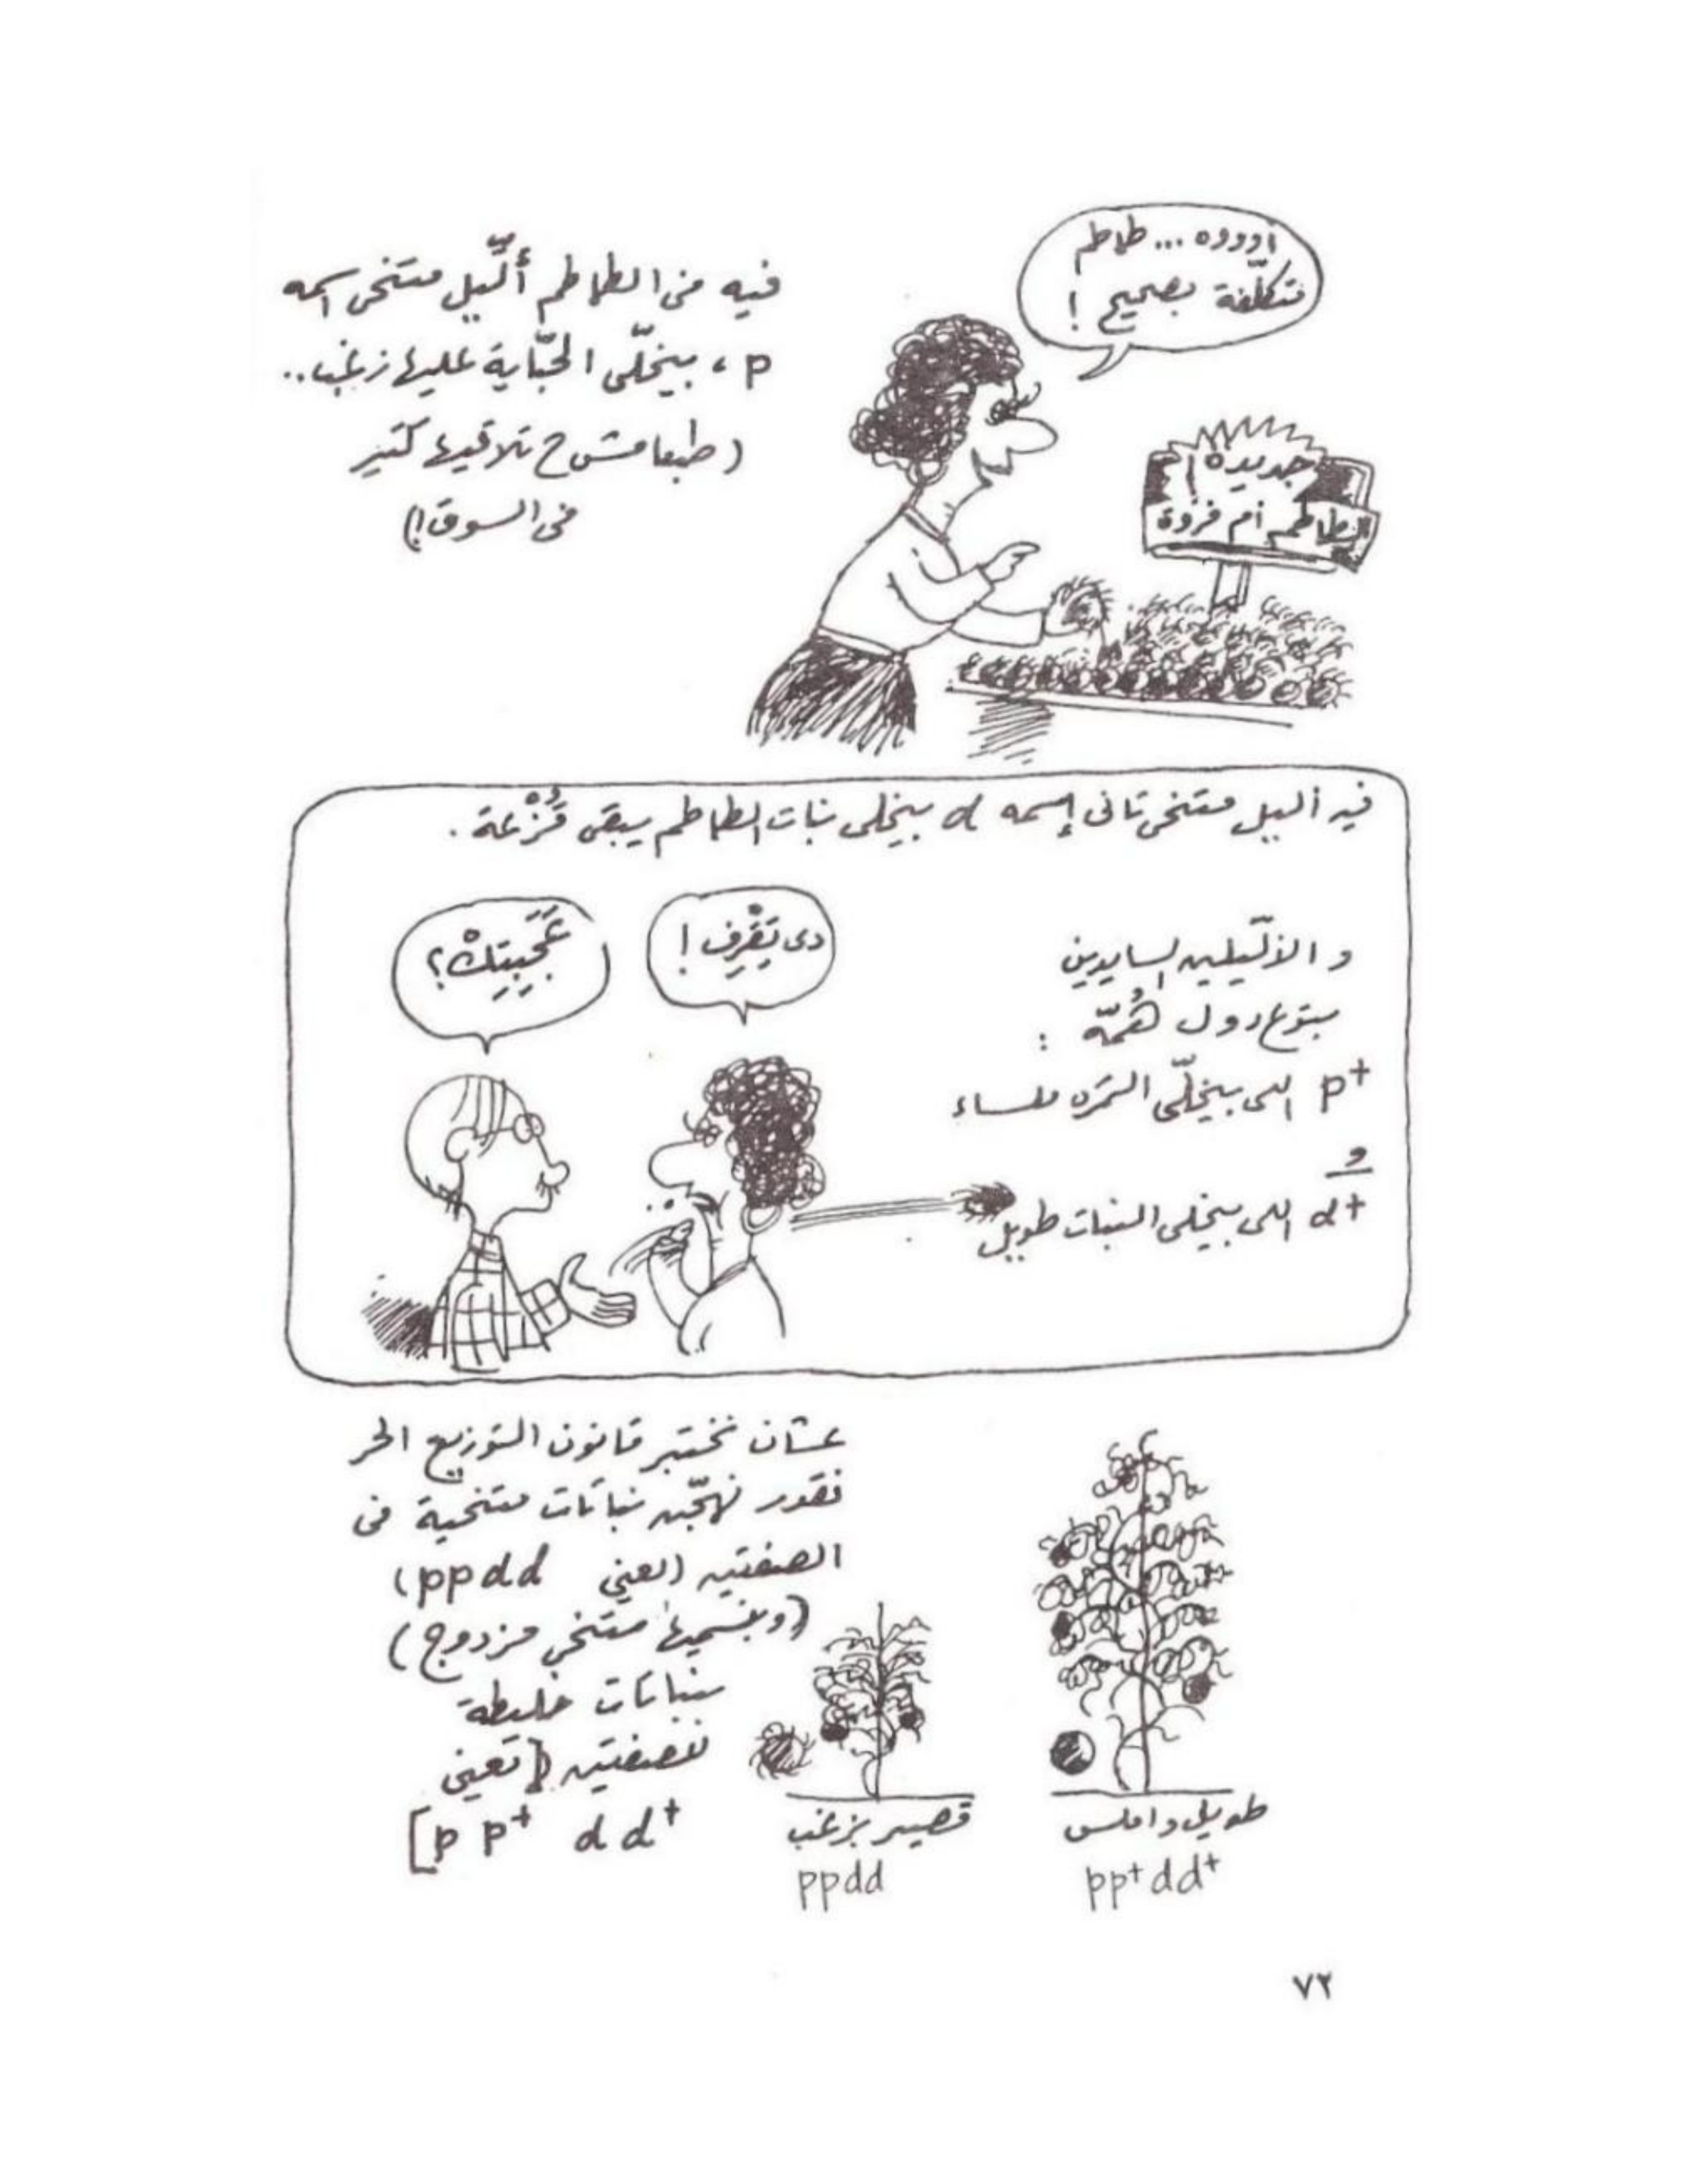 أوووه... طماطم
متكلّفة بصحيح!
فيه فى الطماطم ألّيل متنحى اسمه
p، بيخلّى الحبّاية عليها زغب..
(طبعا مش ح تلاقيها كتير
فى السوق!)
جديدة!
الطماطم أم فروة
فيه أليل متنحى تانى إسمه d بيخلى نبات الطماطم يبقى قُزْعة.
دى تِقْرِف!
عَجَبِتِكْ؟
و الألّيلين السايدين
بتوع دول هُمّه :
p+ اللى بيخلّى الثمره ملساء
و
d+ اللى بيخلى النبات طويل
عشان نختبر قانون التوزيع الحر
نقدر نهجّن نباتات متنحية فى
الصفتين (يعنى ppdd)
(وبنسميها متنحى مزدوج)
بنباتات خليطة
للصفتين [يعنى
p p+ d d+]
قصير بزغب
ppdd
طويل واملس
pp+dd+
٧٢